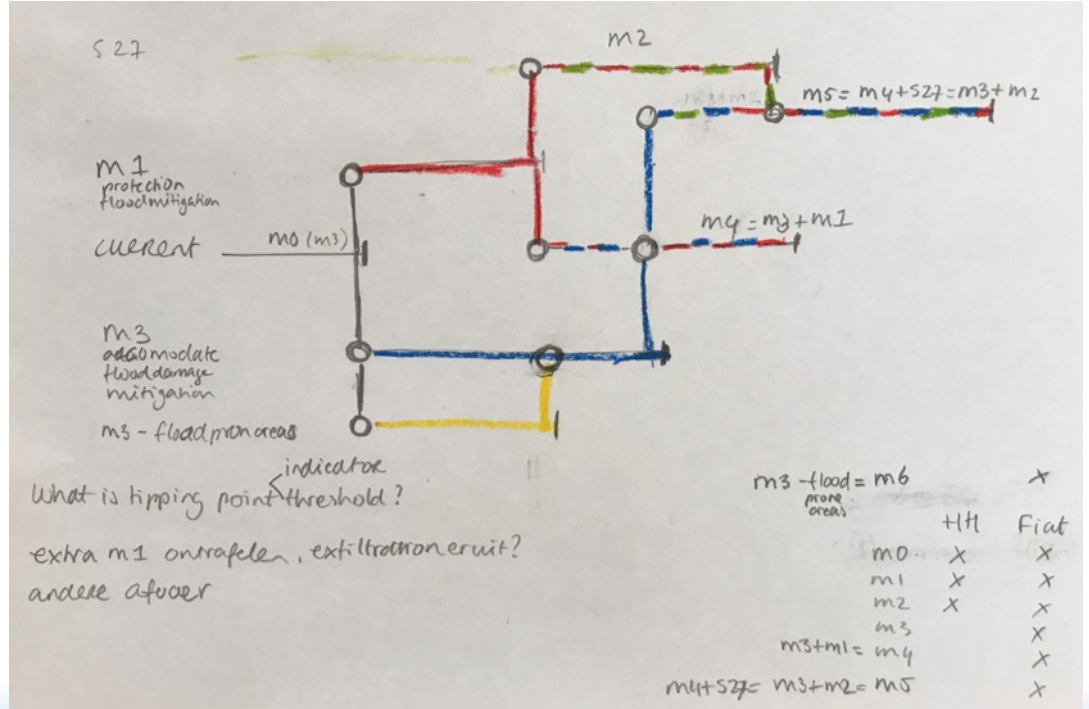 S 27
m2
m5 = m4+S27 = m3+m2
m1
protection
flood mitigation
current
m0 (m3)
m4 = m3+m1
m3
accomodate
flood damage
mitigation
m3 - flood pron areas
indicator
What is tipping point threshold?
extra m1 ontrafelen, exfiltration eruit?
andere afvoer
m3 - flood = m6 x
prone
areas
HH Fiat
m0 x x
m1 x x
m2 x x
m3 x
m3+m1 = m4 x
m4+S27 = m3+m2 = m5 x